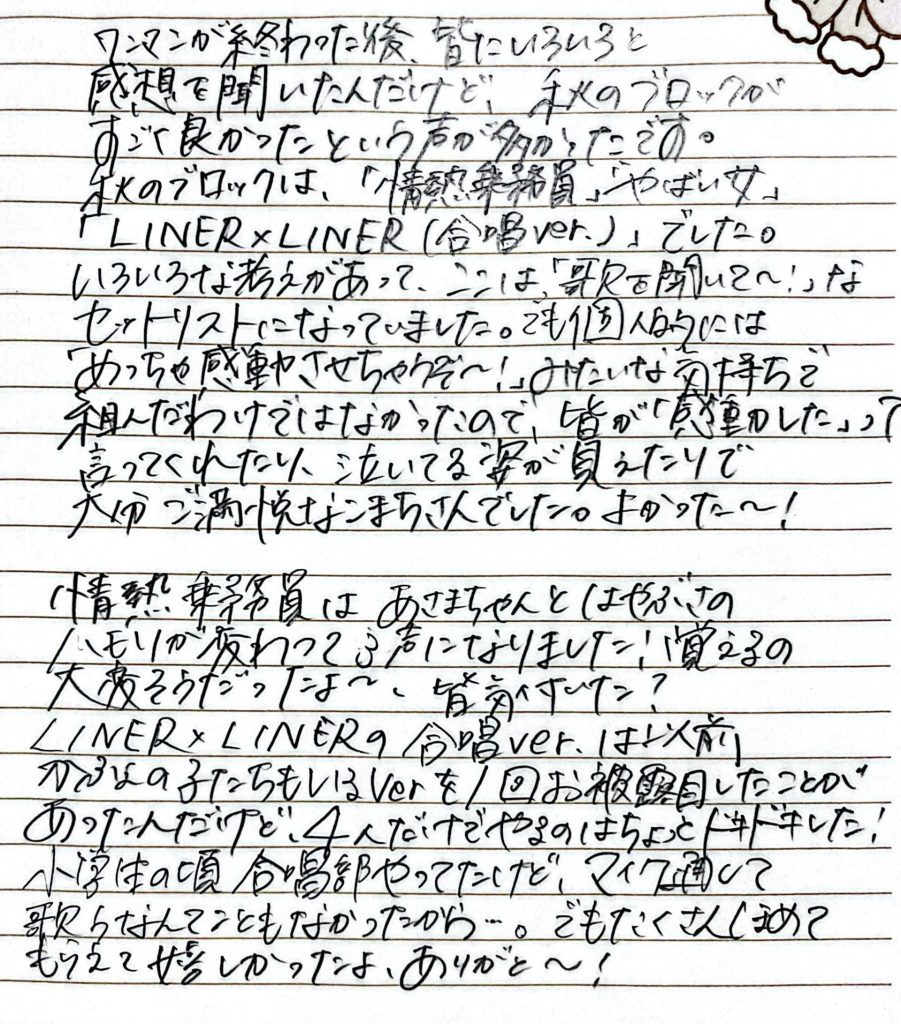 ワンマンが終わった後、皆にいろいろと
感想を聞いたんだけど、秋のブロックが
すごく良かったという声が多かったです。
秋のブロックは、「情熱乗務員」「やばい女」
「LINER×LINER(合唱ver.)」でした。
いろいろな考えがあって、ここは、「歌を聞いて〜!」な
セットリストになっていました。でも個人的には
「めっちゃ感動させちゃうぞ〜!」みたいな気持ちで
組んだわけではなかったので、皆が「感動した」って
言ってくれたり、泣いてる姿が見えたりで
大分ご満悦なこまちさんでした。よかった〜!
情熱乗務員はあさまちゃんとはやぶさの
ハモリが変わって3声になりました!覚えるの
大変そうだったよ〜、皆気付いた?
LINER×LINERの合唱ver.は以前
の子たちもいるverを1回お披露目したことが
あったんだけど、4人だけでやるのはちょっとドキドキした!
小学生の頃合唱部やってたけど、マイク通して
歌うなんてこともなかったから…。でもたくさんほめて
もらえて嬉しかったよ、ありがと〜!